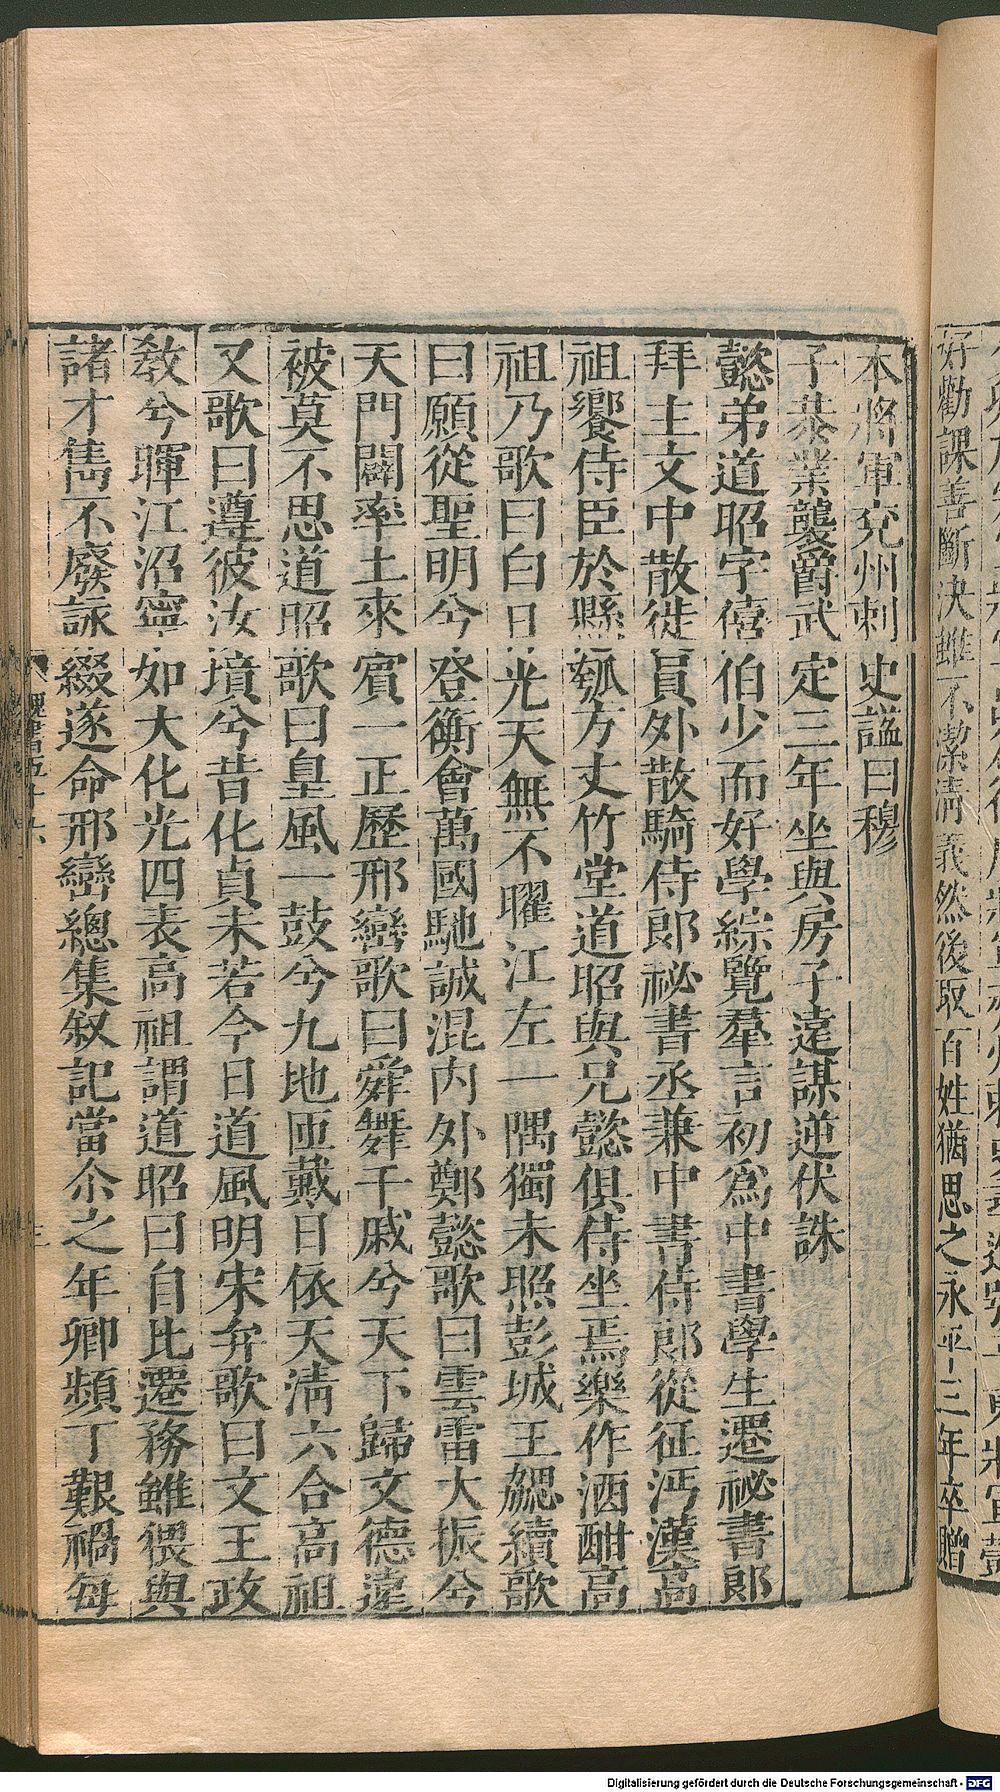 好勸課善斷決雖不潔清義然後取百姓猶思之永平三年卒贈
本將軍兖州刺史諡曰穆
子恭業襲爵武定三年坐與房子遠謀逆伏誅
懿弟道昭字僖伯少而好學綜覽羣言初爲中書學生遷祕書郎
拜主文中散徙員外散騎侍郎祕書丞兼中書侍郎從征沔漢高
祖饗侍臣於懸瓠方丈竹堂道昭與兄懿俱侍坐焉樂作酒酣高
祖乃歌曰白日光天無不曜江左一隅獨未照彭城王勰續歌
曰願從聖明兮登衡會萬國馳誠混内外鄭懿歌曰雲雷大振兮
天門闢率土來賓一正歷邢巒歌曰舜舞干戚兮天下歸文德遠
被莫不思道昭歌曰皇風一鼓兮九地匝戴日依天清六合高祖
又歌曰遵彼汝墳兮昔化貞未若今日道風明宋弁歌曰文王政
教兮暉江沼寧如大化光四表高祖謂道昭曰自比遷務雖猥與
諸才雋不廢詠綴遂命邢巒總集叙記當尒之年卿頻丁艱禍每
魏書五十六